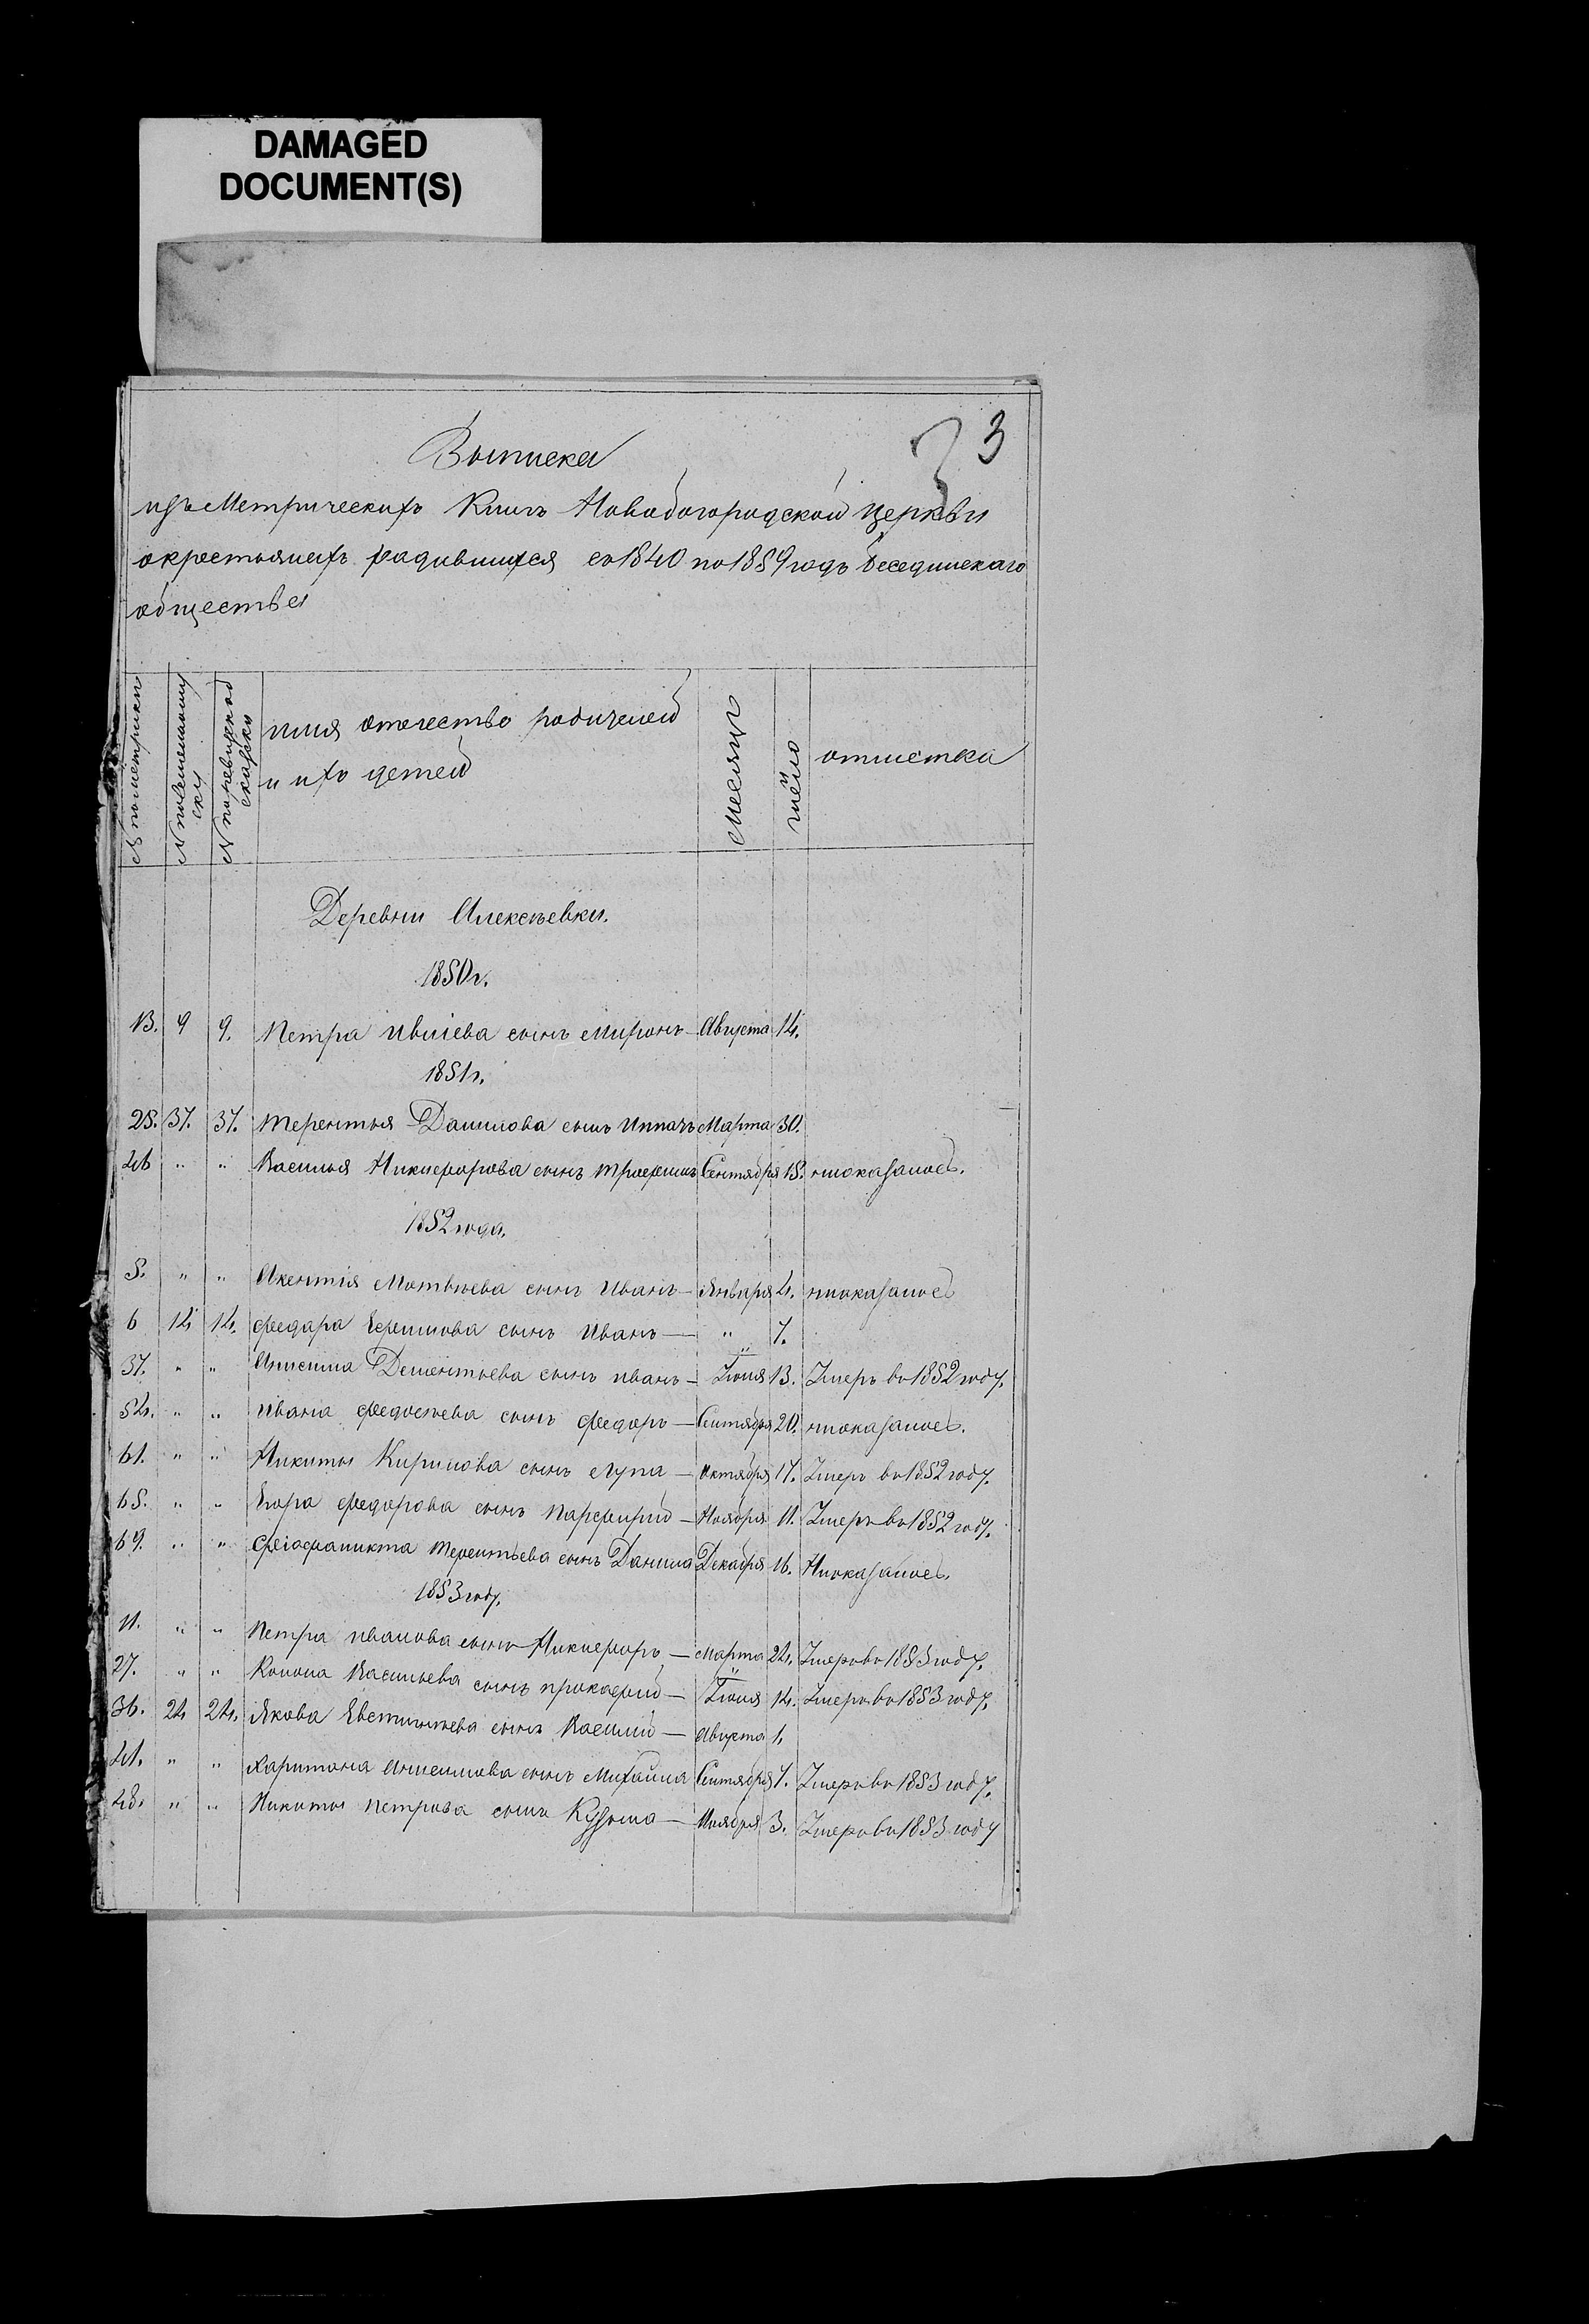 DAMAGED
DOCUMENT(S)
3
Выписка
изъ Метрическихъ Книгъ Новобогородской церкви
окрестьянахъ радившихся съ 1840 по 1859 годъ Беседин­скаго
общества
№ пометрики
№ посемейному
ску
№ поревизкой
скаски
имя отечество родителей
и ихъ детей
Месяцъ
число
отметка
Деревни Алексѣевки.
1850 г.
13. 9 9. Петра Ивлева сынъ Миронъ Августа 14.
1851 г.
25. 37. 37. Терентья Данилова сынъ Ипатъ Марта 30.
46 " " Василья Никифорова сынъ Трофимъ Сентября 15. нпоказаност.
1852 года.
5. " " Акентия Матвѣева сынъ Иванъ — Января 4. нпоказаност
6 14 14. федара Ефимова сынъ Иванъ — " 7.
37. " " Анисима Дементьева сынъ иванъ — Іюля 13. Умеръ во 1852 году.
54. " " Ивана федосѣева сынъ федоръ — Сентября 20. нпоказаност.
61. " " Никиты Кирилова сынъ Лупа — Октября 17. Умеръ во 1852 году.
65. " " Егора федорова сынъ Парфирий — Ноября 11. Умеръ во 1852 году.
69. " " Терентьева сынъ Данила Декабря 16. Нпоказаност.
1853 году.
11. " " Петра Иванова сынъ Никифоръ — Марта 24. Умеръ во 1853 году.
27. " " Конона Васильева сынъ прокафий — Іюля 14. Умеръ во 1853 году.
36. 24 24. Якова Евстигнѣева сынъ Василий — Августа 1.
41. " " Харитона Анисимова сынъ Михаила Сентября 7. Умеръ во 1853 году.
48. " " Никиты Петрова сынъ Кузьма — Ноября 3. Умеръ во 1853 году